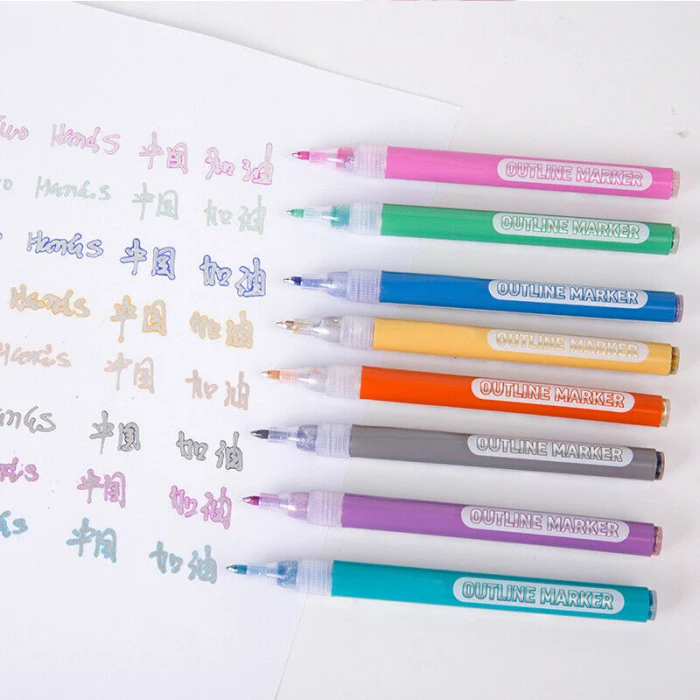 Two Hands 中国 加油
OUTLINE MARKER
wo Hands 中国 加油
OUTLINE MARKER
Hands 中国 加油
OUTLINE MARKER
Hands 中国 加油
OUTLINE MARKER
Hands 中国 加油
OUTLINE MARKER
ands 中国 加油
OUTLINE MARKER
ds 中国 加油
OUTLINE MARKER
ds 中国 加油
OUTLINE MARKER